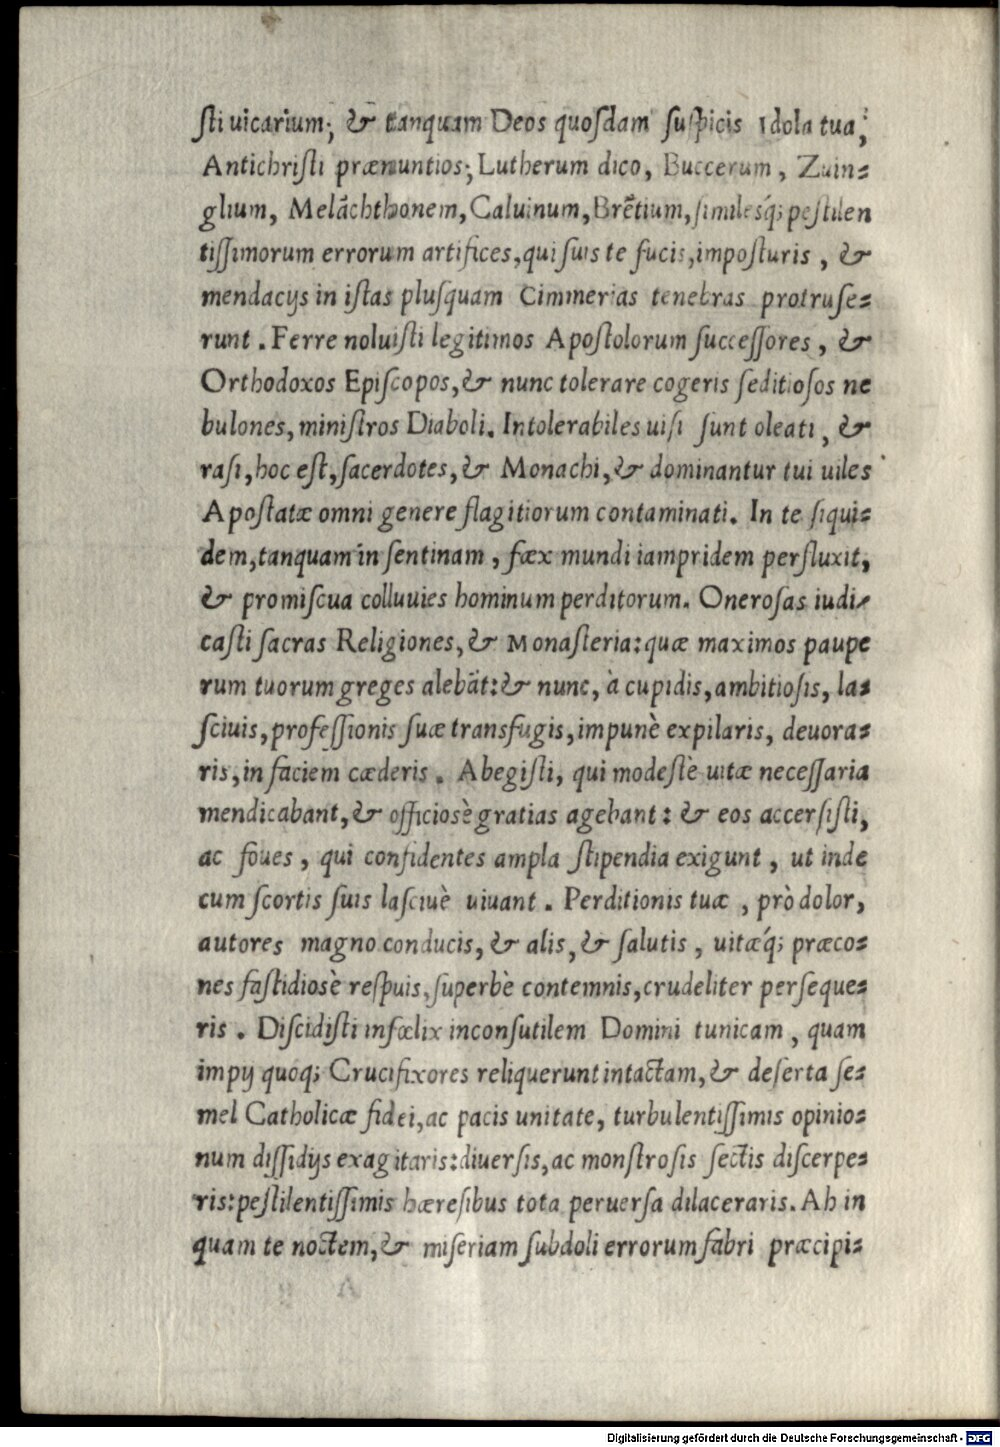 ſti uicarium; & tanquam Deos quoſdam ſuſpicis Idola tua;
Antichriſti prænuntios; Lutherum dico, Buccerum, Zuin=
glium, Melãchthonem, Caluinum, Brẽtium, ſimilesq́; peſtilen
tiſſimorum errorum artifices, qui ſuis te fucis, impoſturis, &
mendacijs in iſtas pluſquam Cimmerias tenebras protruſe=
runt. Ferre noluiſti legitimos Apoſtolorum ſucceſſores, &
Orthodoxos Epiſcopos, & nunc tolerare cogeris ſeditioſos ne
bulones, miniſtros Diaboli. Intolerabiles uiſi ſunt oleati, &
raſi, hoc eſt, ſacerdotes, & Monachi, & dominantur tui uiles
Apoſtatæ omni genere flagitiorum contaminati. In te ſiqui=
dem, tanquam in ſentinam, fæx mundi iampridem perfluxit,
& promiſcua colluuies hominum perditorum. Oneroſas iudi=
caſti ſacras Religiones, & Monaſteria: quæ maximos paupe
rum tuorum greges alebãt: & nunc, à cupidis, ambitioſis, la=
ſciuis, profeſſionis ſuæ transfugis, impunè expilaris, deuora=
ris, in faciem cæderis. Abegiſti, qui modeſtè uitæ neceſſaria
mendicabant, & officioſè gratias agebant: & eos accerſiſti,
ac foues, qui confidentes ampla ſtipendia exigunt, ut inde
cum ſcortis ſuis laſciuè uiuant. Perditionis tuæ, prò dolor,
autores magno conducis, & alis, & ſalutis, uitæq́; præco=
nes faſtidioſè reſpuis, ſuperbè contemnis, crudeliter perſeque=
ris. Diſcidiſti infœlix inconſutilem Domini tunicam, quam
impij quoq; Crucifixores reliquerunt intactam, & deſerta ſe=
mel Catholicæ fidei, ac pacis unitate, turbulentiſſimis opinio=
num diſſidijs exagitaris: diuerſis, ac monſtroſis ſectis diſcerpe=
ris: peſtilentiſſimis hæreſibus tota peruerſa dilaceraris. Ab in
quam te noctem, & miſeriam ſubdoli errorum fabri præcipi=
Digitalisierung gefördert durch die Deutsche Forschungsgemeinschaft - DFG